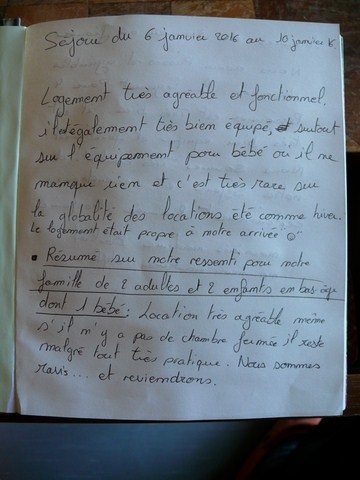 Séjour du 6 janvier 2016 au 10 janvier 16.
Logement très agréable et fonctionnel,
il est également très bien équipé, et surtout
sur l'équipement pour bébé où il ne
manque rien et c'est très rare sur
la globalité des locations été comme hiver.
Le logement était propre à notre arrivée
• Résumé sur notre ressenti pour notre
famille de 2 adultes et 2 enfants en bas-âge
dont 1 bébé: Location très agréable même
s'il n'y a pas de chambre fermée il reste
malgré tout très pratique. Nous sommes
ravis... et reviendrons.